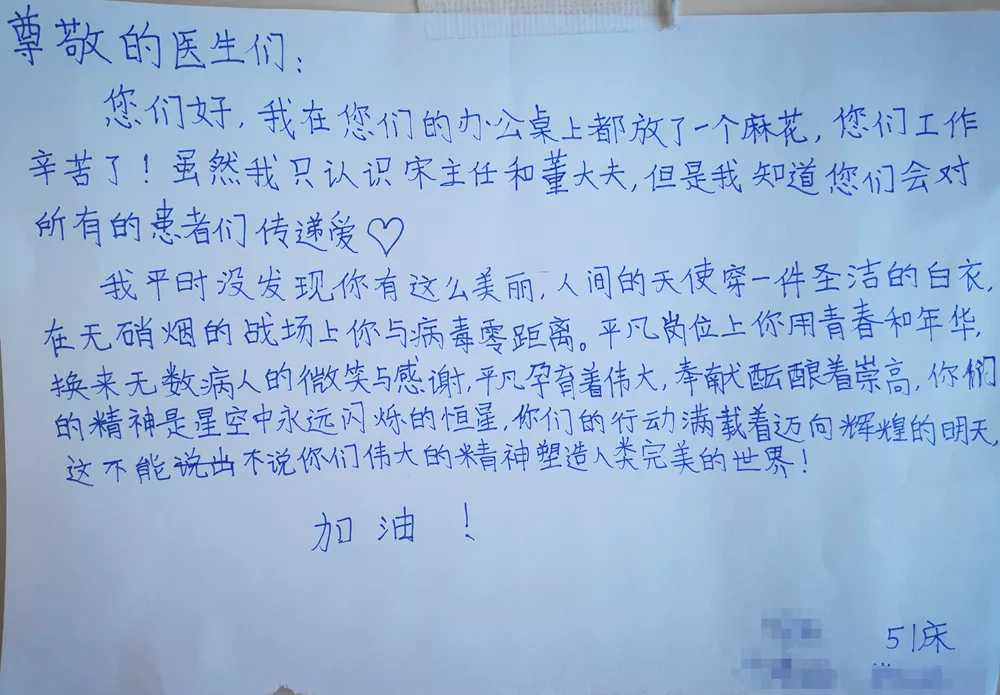 尊敬的医生们：
您们好，我在您们的办公桌上都放了一个麻花，您们工作
辛苦了！虽然我只认识宋主任和董大夫，但是我知道您们会对
所有的患者们传递爱♡
我平时没发现你有这么美丽，人间的天使穿一件圣洁的白衣，
在无硝烟的战场上你与病毒零距离。平凡岗位上你用青春和年华，
换来无数病人的微笑与感谢，平凡孕育着伟大，奉献酝酿着崇高，你们
的精神是星空中永远闪烁的恒星，你们的行动满载着迈向辉煌的明天，
这不能说出不说你们伟大的精神塑造人类完美的世界！
加油！
51床